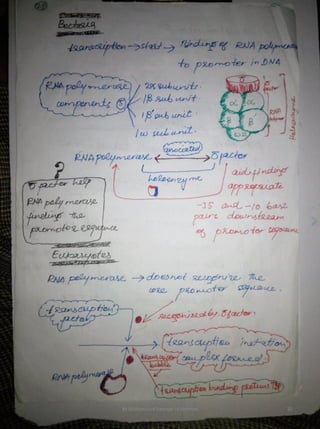 Bacteria
transcription → start → Binding of RNA polymerase
to promoter in DNA
RNA polymerase
components ⑤
2α subunits.
1β subunit
1β' subunit
1ω subunit.
σ factor
α
α
β
β'
ω
RNA
Holoenzyme
associated
RNA polymerase
σ factor
holoenzyme
?
σ factor help
RNA polymerase
finding the
promoter sequence
aid finding
appropriate
-35 and -10 base
pairs downstream
of promoter sequence
Eukaryotes
RNA polymerase → does not recognize the
core promotor sequence.
transcription
factor
recognized by σ factor.
transcription initation
complex formed
transcription
bubble
RNA polymerase
transcription binding proteins